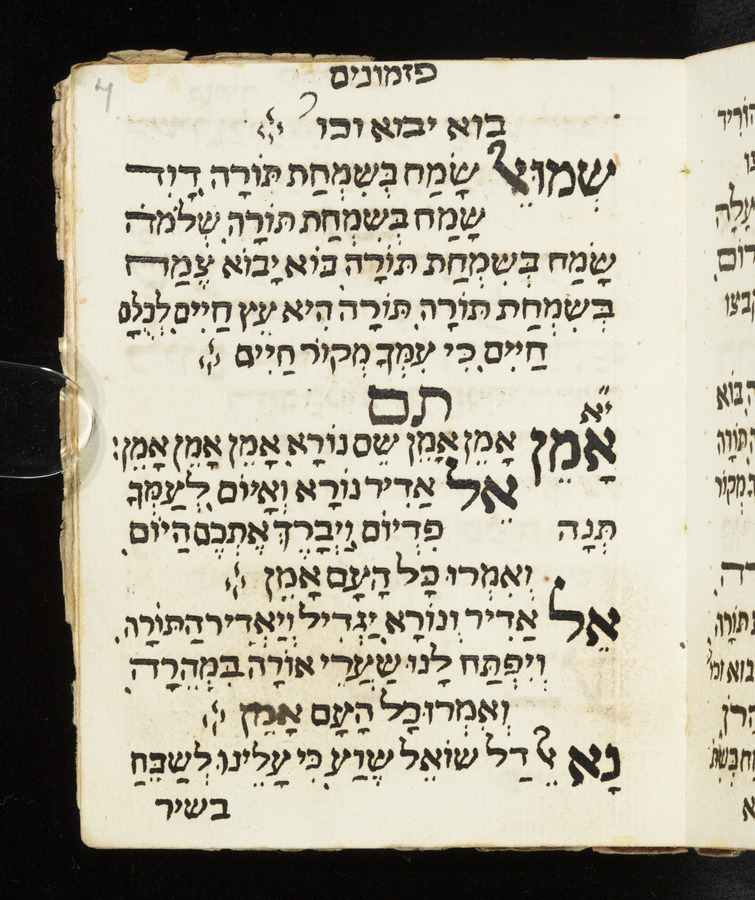 פזמונים
בוא יבוא וכו
שְׁמוּאֵל שָׂמַח בְּשִׂמְחַת תּוֹרָה דָּוִיד
שָׂמַח בְּשִׂמְחַת תּוֹרָה שְׁלֹמֹה
שָׂמַח בְּשִׂמְחַת תּוֹרָה בּוֹא יָבוֹא צֶמַח
בְּשִׂמְחַת תּוֹרָה תּוֹרָה הִיא עֵץ חַיִּים לְכֻלָּם
חַיִּים כִּי עִמְּךָ מְקוֹר חַיִּים
תם
י״א
אָמֵן אָמֵן אָמֵן שֵׁם נוֹרָא אָמֵן אָמֵן אָמֵן אָמֵן:
אֵל אַדִּיר נוֹרָא וְאָיוֹם לְעַמְּךָ
תְּנָה פִדְיוֹם וַיְבָרֶךְ אֶתְכֶם הַיּוֹם
וְאִמְרוּ כָּל הָעָם אָמֵן
אֵל אַדִּיר וְנוֹרָא יַגְדִּיל וְיַאְדִּיר הַתּוֹרָה
וְיִפְתַּח לָנוּ שַׁעֲרֵי אוֹרָה בִּמְהֵרָה
וְאִמְרוּ כָל הָעָם אָמֵן
נָא אֵל דַל שׁוֹאֵל שֶׁוַע כִּי עָלֵינוּ לְשַׁבֵּחַ
בשיר